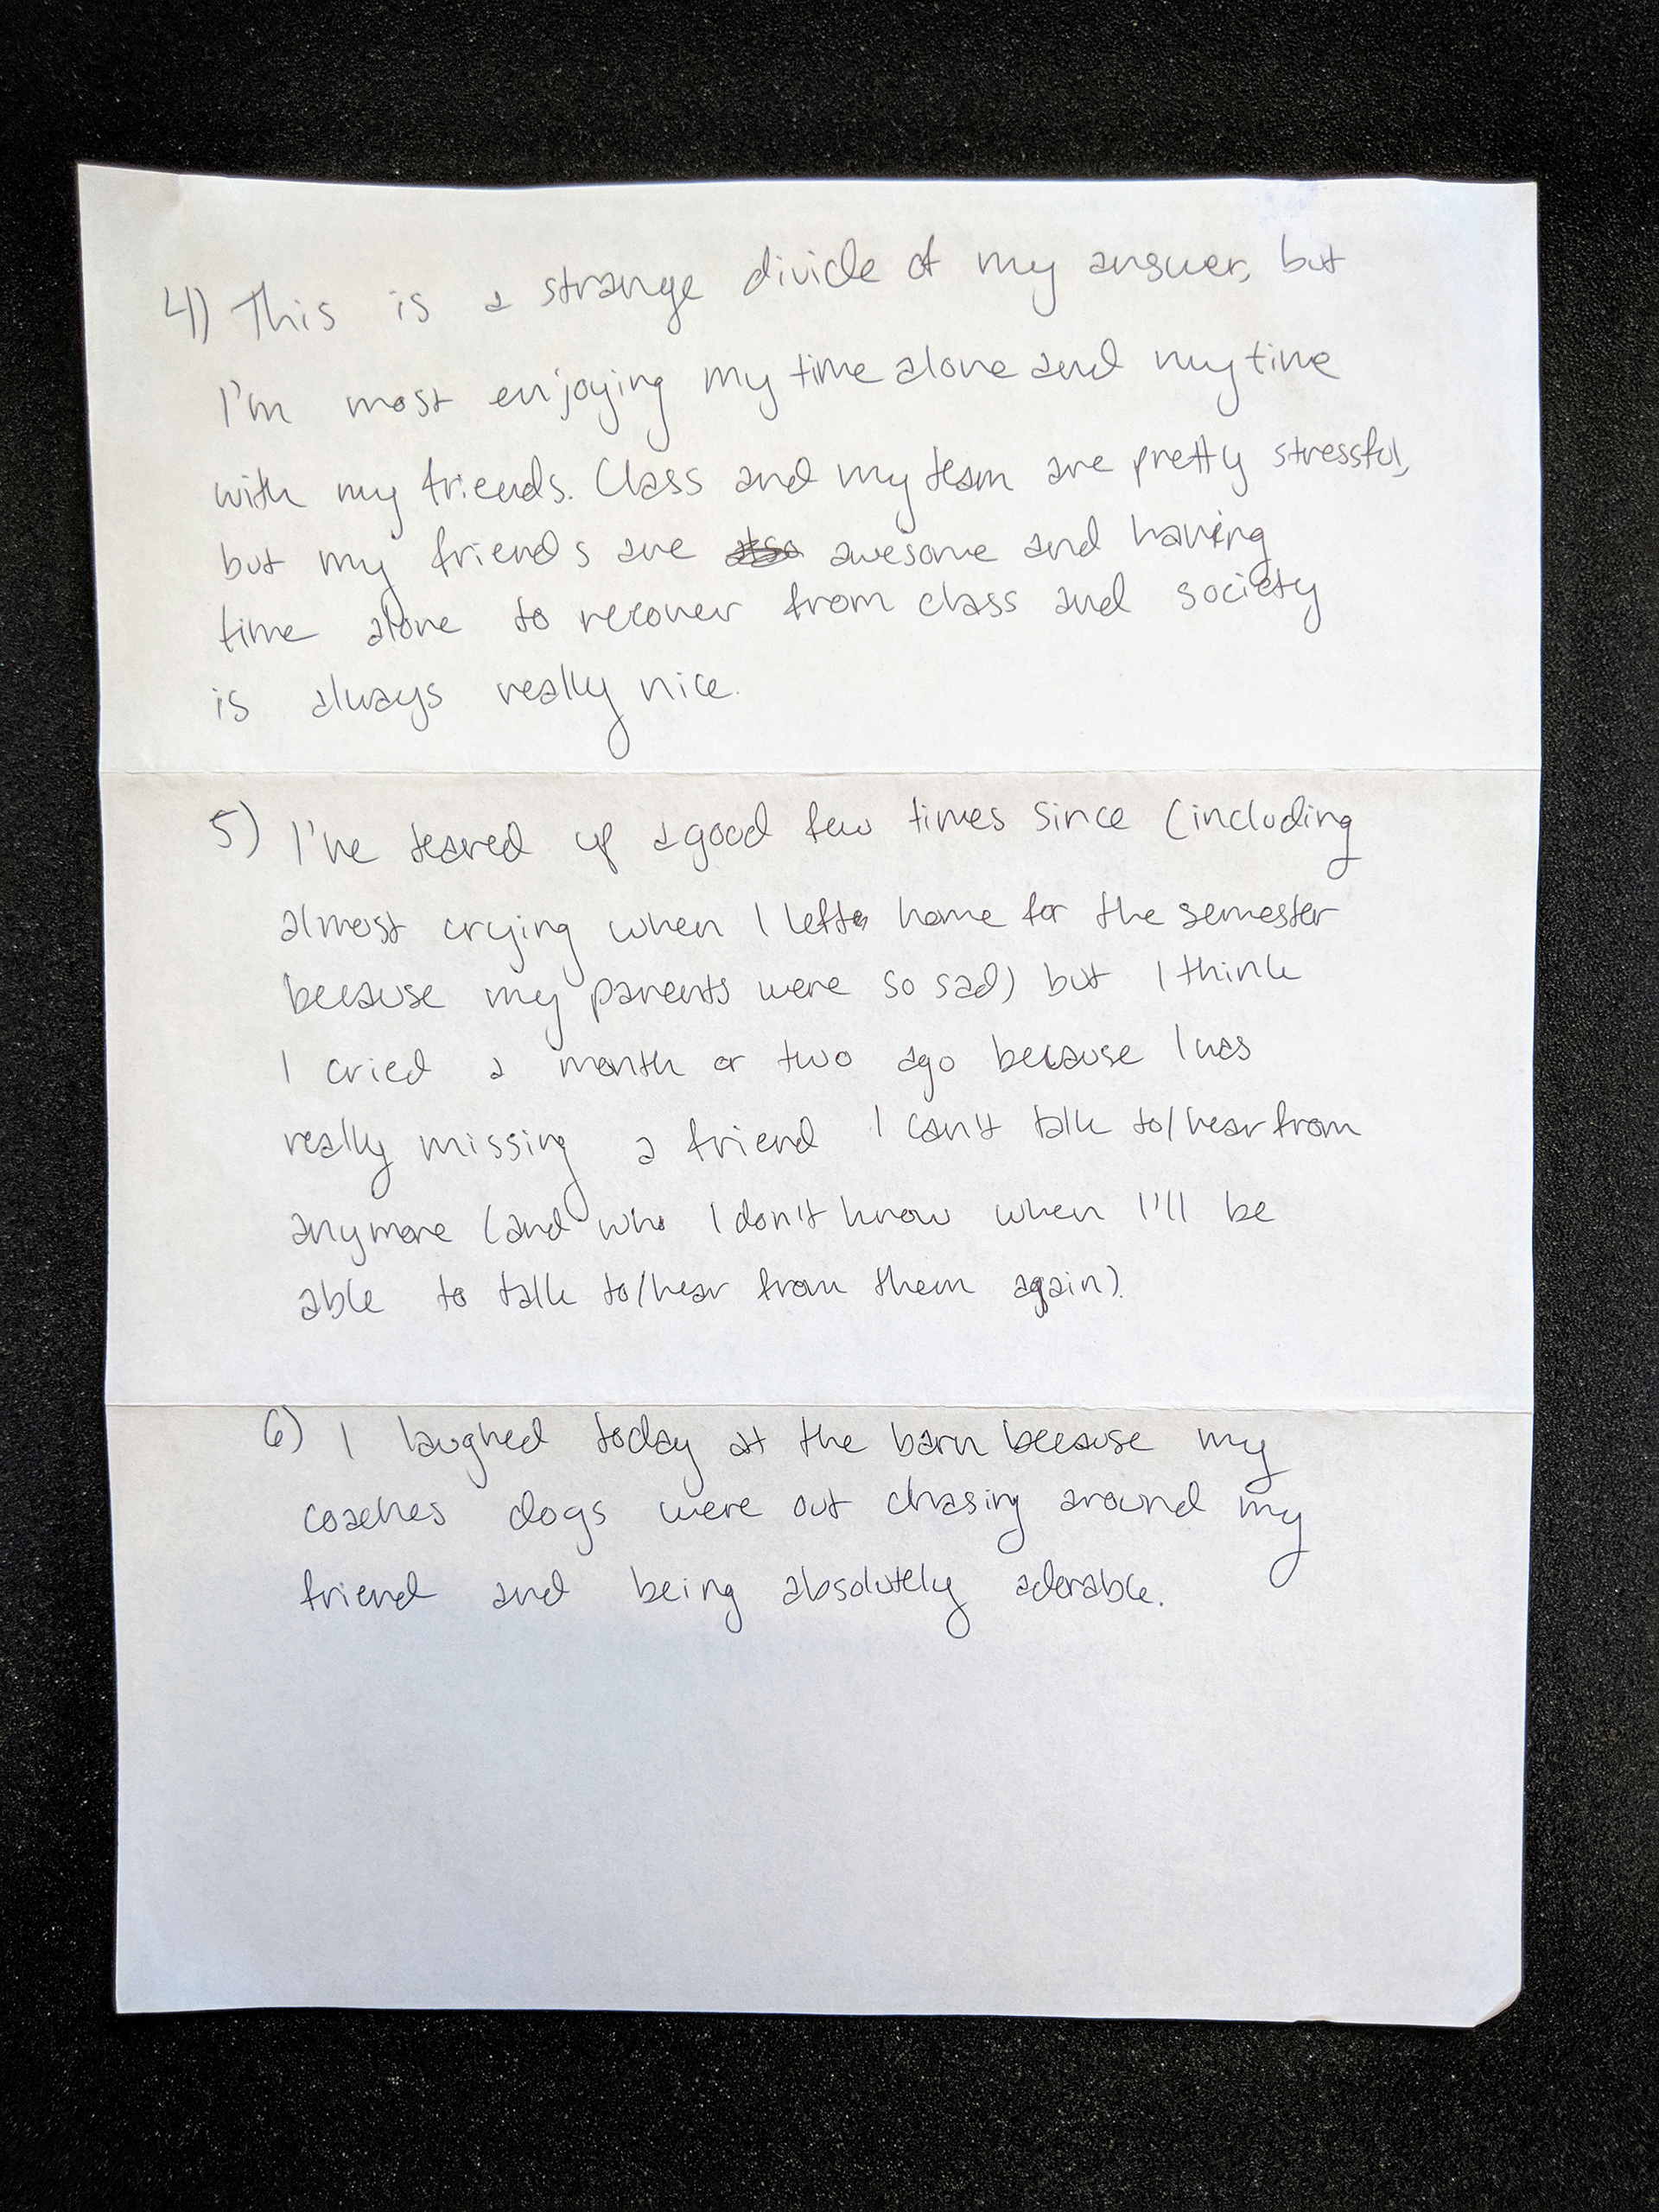 4) This is a strange divide of my answer, but
I'm most enjoying my time alone and my time
with my friends. Class and my team are pretty stressful,
but my friends are awesome and having
time alone to recover from class and society
is always really nice.
5) I've teared up a good few times since (including
almost crying when I left home for the semester
because my parents were so sad) but I think
I cried a month or two ago because I was
really missing a friend I can't talk to/hear from
anymore (and who I don't know when I'll be
able to talk to/hear from them again).
6) I laughed today at the barn because my
coaches dogs were out chasing around my
friend and being absolutely adorable.